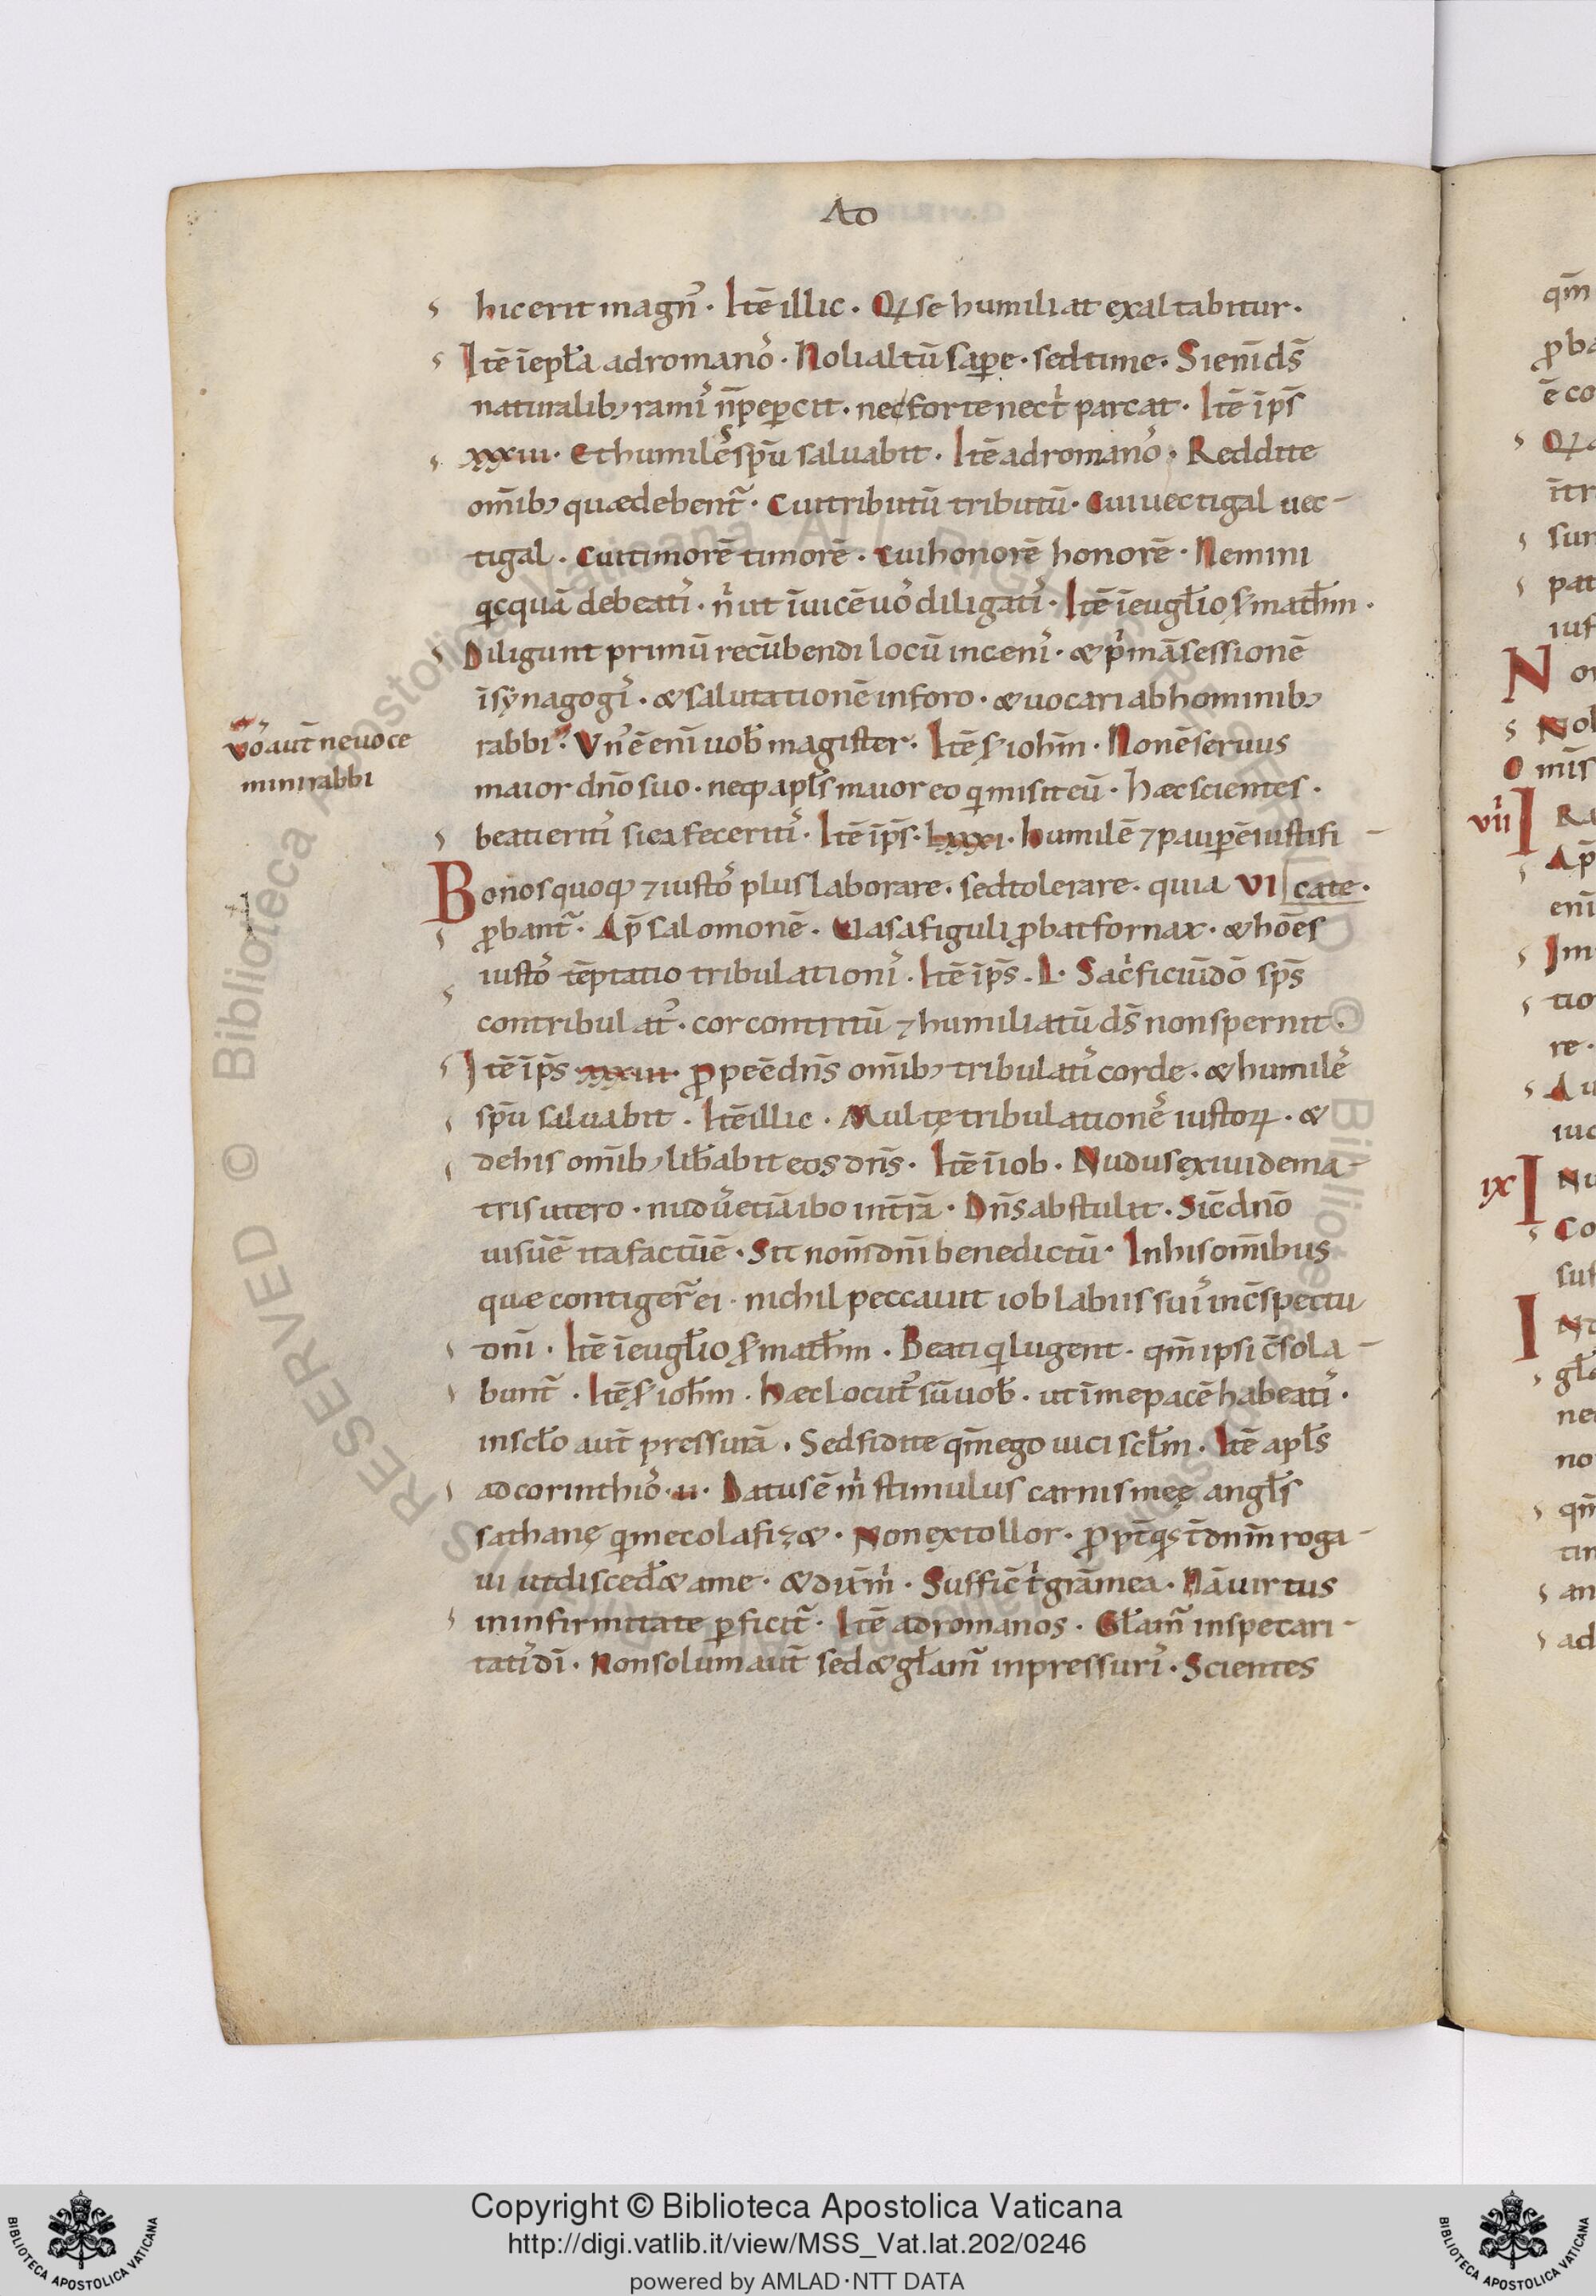 Ao
hic erit magn᷒ · Itē illic · Qꝛ se humiliat exaltabitur ·
Itē ī epl̄a ad romano᷒ · Noli altū saꝑe · sed time · Si eni̅ ds̄
naturalib; rami᷒ n̄ peꝑcit · nec forte nec tⁱ parcat · Itē ī ps̄
xxxiii · Et humile᷒ spū saluabit · Itē ad romano᷒ · Reddite
om̄ib; quæ debent᷑ · Cui tributū tributū · Cui uectigal uec-
tigal · Cui timorē timorē · Cui honorē honorē · Nemini
qcquā debeati᷒ · nⁱ ut īuicē uo᷒ diligati᷒ · Itē ī eugl̄io s̄ math̄m ·
Diligunt primū recūbendi locū in ceni᷒ · & pⁱmā sessionē
ī synagogi᷒ · & salutationē in foro · & uocari ab hominib;
rabbi · Vn᷒ ē eni̅ uob̄ magister · Itē s̄ ioh̄m · Non ē seruus
maior dn̄o suo · neq; apl̄s maior eo qi misit eū · Hæc scientes ·
beati eriti᷒ si ea feceriti᷒ · Itē ī ps̄ · Lxxxi · Humilē ⁊ pauꝑē iustifi-
uo᷒ aut̄ ne uoce
mini rabbi
Bonos quoq; ⁊ iusto᷒ plus laborare · sed tolerare · quia VI cate ·
ꝓbant᷑ · Ap̄ salomonē · Uasa figuli ꝓbat fornax · & hoēs
iusto᷒ tēptatio tribulationi᷒ · Itē ī ps̄ · L · Sacⁱficiū dō sps̄
contribulat᷒ · cor contritū ⁊ humiliatū ds̄ non spernit ·
Itē ī ps̄ xxxiii · Prope ē dn̄s om̄ib; tribulati᷒ corde · & humile᷒
spū saluabit · Itē illic · Multę tribulatione᷒ iustoꝝ · &
de his om̄ib; lib̄abit eos dn̄s · Itē ī iob · Nudus exiui de ma-
tris utero · nud᷒ etiā ibo in t̄rā · Dn̄s abstulit · Sic̄ dn̄o
uisū ē ita factū ē · Sit nom̄ dn̄i benedictū · In his omībus
quæ contiger̄ ei · nichil peccauit iob labiis sui᷒ in c̄spectu
dn̄i · Itē ī eugl̄io s̄ math̄m · Beati qi lugent · qm̄ ipsi c̄sola-
bunt᷑ · Itē s̄ ioh̄m · Hæc locut᷒ sū uob̄ · ut ī me pacē habeati᷒ ·
in scl̄o aut̄ pressurā · Sed fidite qm̄ ego uici scl̄m · Itē apl̄s
ad corinthio᷒ · ii · Datus ē mⁱ stimulus carnis meę angl̄s
sathanę qi me colafiz& · Non extollor · ꝓpt̄ qs t̄ dn̄m roga-
ui ut disced̄& a me · & dix̄ mⁱ · Suffic̄ tⁱ grā mea · Nā uirtus
in infirmitate ꝑficit᷑ · Itē ad romanos · Gl̄am᷑ in spe cari-
tati᷒ dī · Non solum aut̄ sed & gl̄am᷑ in pressuri᷒ · Scientes
vii
ix
Copyright © Biblioteca Apostolica Vaticana
http://digi.vatlib.it/view/MSS_Vat.lat.202/0246
powered by AMLAD·NTT DATA
BIBLIOTECA APOSTOLICA VATICANA
BIBLIOTECA APOSTOLICA VATICANA